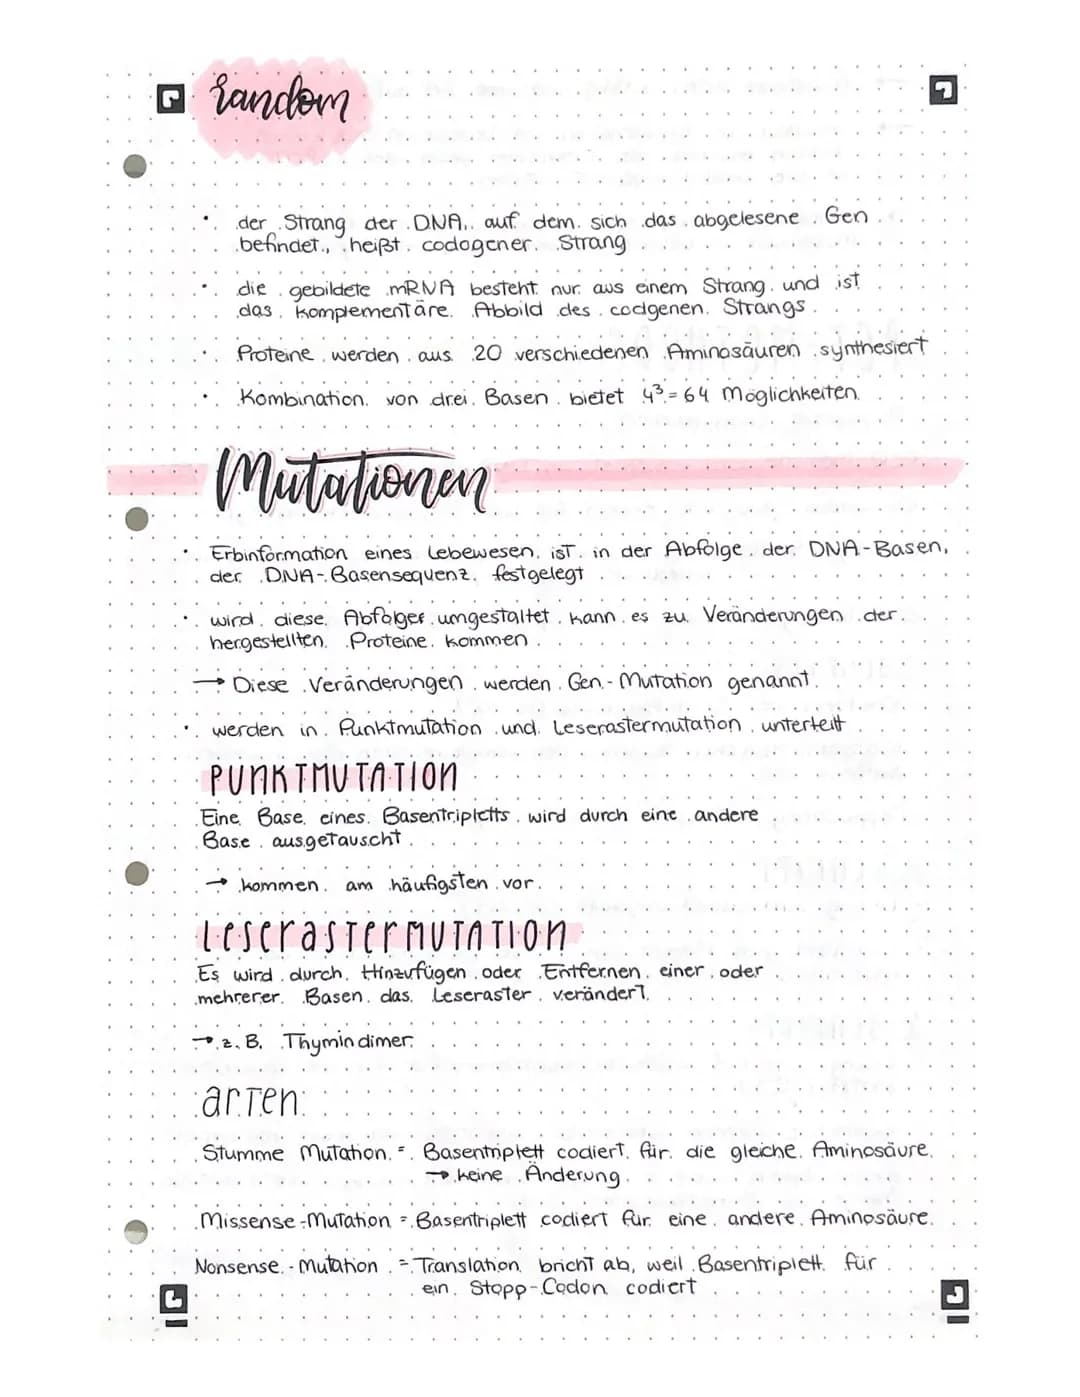 random
• der Strang der DNA, auf dem sich das abgelesene Gen
befindet, heißt codogener Strang
• die gebildete mRNA besteht nur aus einem Strang und ist
das komplementäre Abbild des codgenen Strangs
• Proteine werden aus 20 verschiedenen Aminosäuren synthesiert
• Kombination von drei Basen bietet 4³ = 64 Möglichkeiten
Mutationen
• Erbinformation eines Lebewesen ist in der Abfolge der DNA-Basen,
der DNA-Basensequenz festgelegt
• wird diese Abfolger umgestaltet kann es zu Veränderungen der
hergestellten Proteine kommen
→ Diese Veränderungen werden Gen-Mutation genannt
• werden in Punktmutation und Leserastermutation unterteilt
PUNKTMUTATION
Eine Base eines Basentripletts wird durch eine andere
Base ausgetauscht
→ kommen am häufigsten vor
LeserasterMUTATION
Es wird durch Hinzufügen oder Entfernen einer oder
mehrerer Basen das Leseraster verändert
→ z. B. Thymindimer
arten:
Stumme Mutation = Basentriplett codiert für die gleiche Aminosäure
→ keine Änderung
Missense-Mutation = Basentriplett codiert für eine andere Aminosäure
Nonsense-Mutation = Translation bricht ab, weil Basentriplett für
ein Stopp-Codon codiert